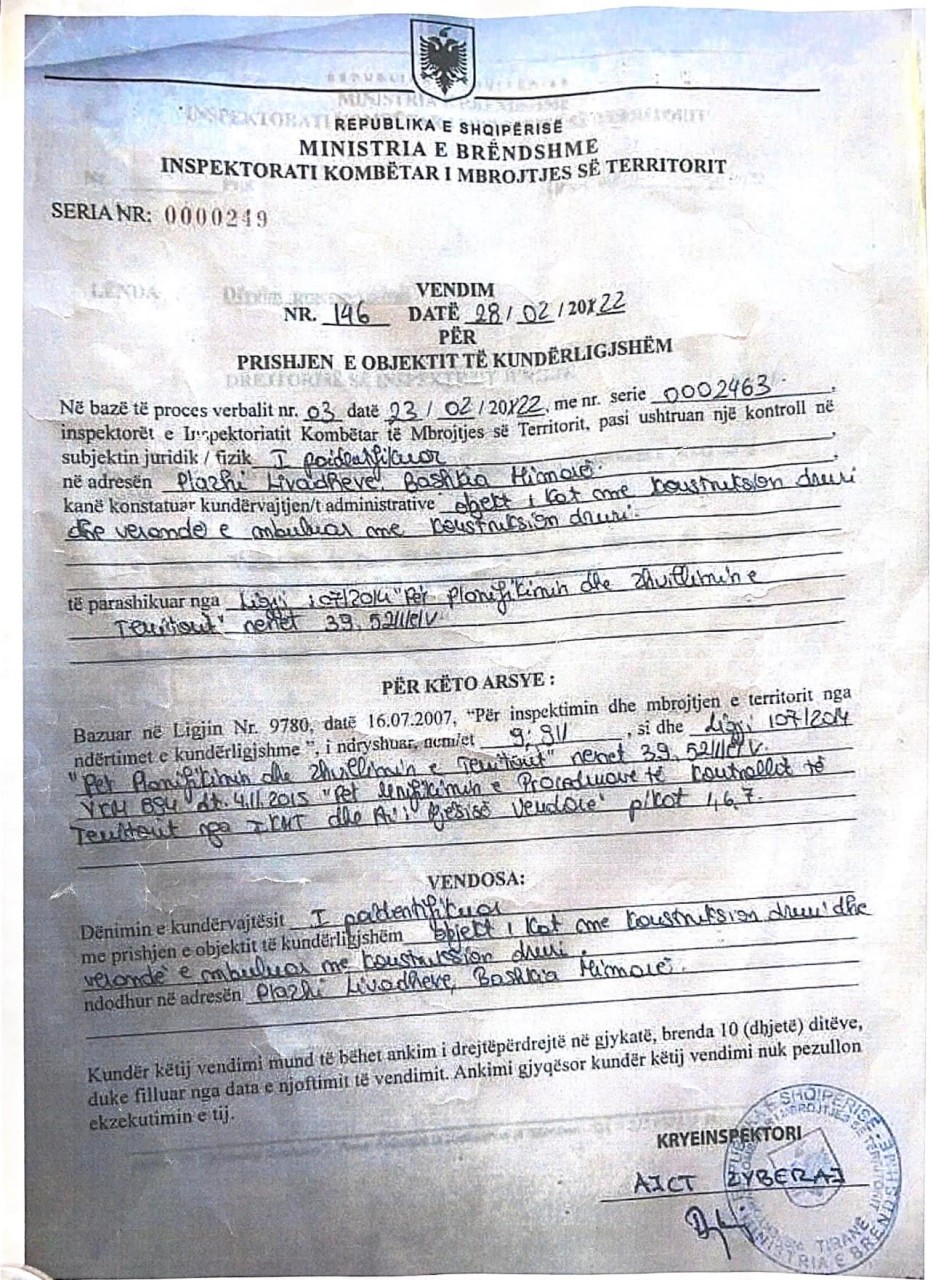 REPUBLIKA E SHQIPËRISË
MINISTRIA E BRËNDSHME
INSPEKTORATI KOMBËTAR I MBROJTJES SË TERRITORIT
SERIA NR: 0000249
VENDIM
NR. 146 DATË 28 / 02 / 2022
PËR
PRISHJEN E OBJEKTIT TË KUNDËRLIGJSHËM
Në bazë të proces verbalit nr. 03 datë 23 / 02 / 2022, me nr. serie 0002463.,
inspektorët e Inspektoriatit Kombëtar të Mbrojtjes së Territorit, pasi ushtruan një kontroll në
subjektin juridik / fizik I paidentifikuar,
në adresën Plazhi Livadheve, Bashkia Himarë.,
kanë konstatuar kundërvajtjen/t administrative objekt 1 kat me konstruksion druri
dhe verandë e mbuluar me konstruksion druri.
të parashikuar nga Ligji 107/2014 "Për planifikimin dhe zhvillimin e
Territorit" nenet 39, 52/
PËR KËTO ARSYE :
Bazuar në Ligjin Nr. 9780, datë 16.07.2007, "Për inspektimin dhe mbrojtjen e territorit nga
ndërtimet e kundërligjshme ", i ndryshuar, nem/et 9, , si dhe Ligji 107/2014
"Për Planifikimin dhe Zhvillimin e Territorit" nenet 39, 52/
VKM 894 dt. 4.11.2015 "Për Unifikimin e Procedurave të Kontrollit të
Territorit nga IKMT dhe vendore" pikat 4,6,7.
VENDOSA:
Dënimin e kundërvajtësit I paidentifikuar
me prishjen e objektit të kundërligjshëm objekt 1 kat me konstruksion druri dhe
verandë e mbuluar me konstruksion druri.
ndodhur në adresën Plazhi Livadheve, Bashkia Himarë.
Kundër këtij vendimi mund të bëhet ankim i drejtëpërdrejtë në gjykatë, brenda 10 (dhjetë) ditëve,
duke filluar nga data e njoftimit të vendimit. Ankimi gjyqësor kundër këtij vendimi nuk pezullon
ekzekutimin e tij.
KRYEINSPEKTORI
ZYBERAJ